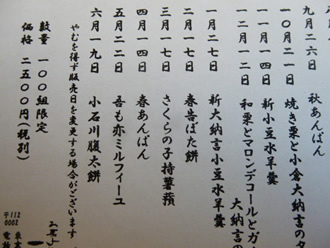 秋あんぱん
一〇月二一日 焼き栗と小倉大納言のタ
新小豆水羊羹
一二月一二日 和栗とマロンデコールとガ
大納言の
一月二七日 新大納言小豆水羊羹
二月一七日 春告ぼた餅
三月一七日 さくらの子持薯蕷
四月一四日 春あんぱん
五月一二日 吾も亦ミルフィーユ
六月一九日 小石川腹太餅
やむを得ず販売日を変更する場合がございます
数量 一〇〇組限定
価格 二五〇〇円(税別)
〒112
0002